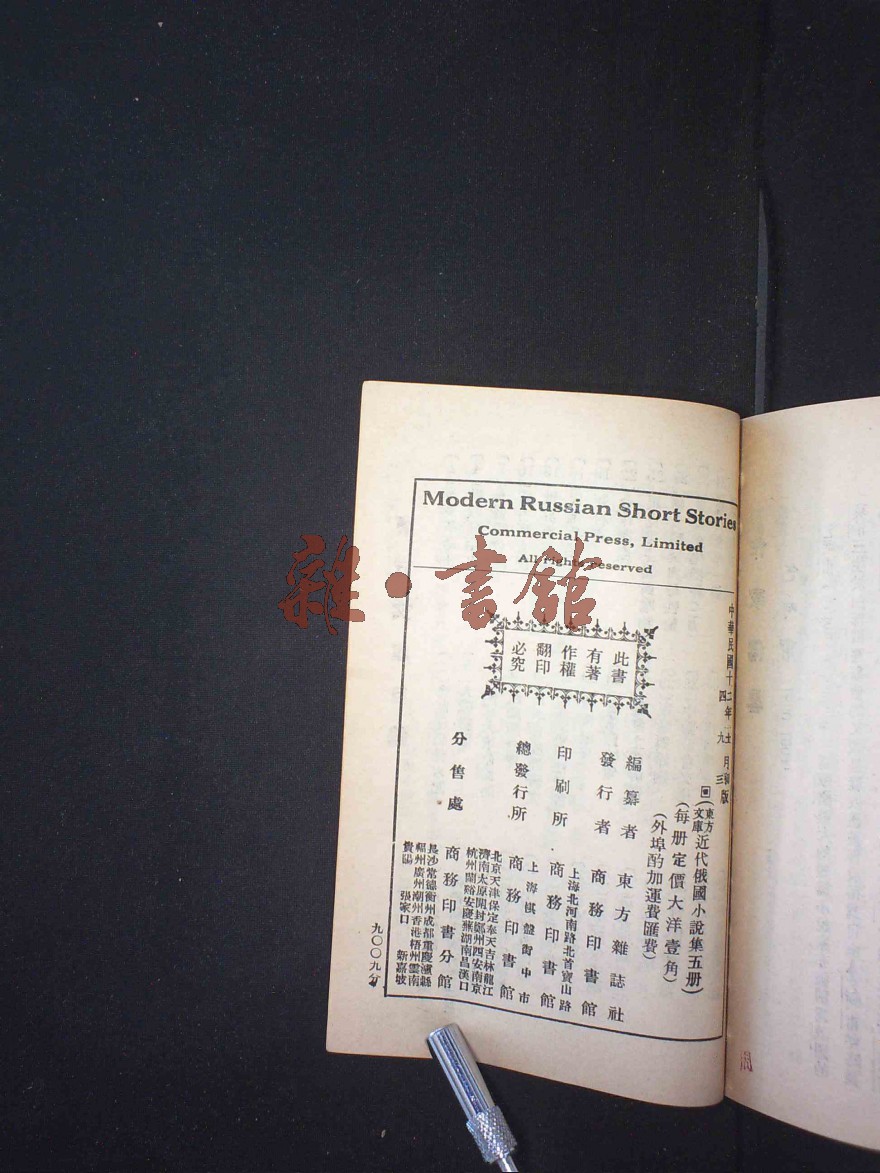 Modern Russian Short Stories
Commercial Press, Limited
All rights reserved
雜·書館
此書
有著
作權
翻印
必究
中華民國十二年十二月初版
四年九月三版
東方文庫
近代俄國小說集五册
(每册定價大洋壹角)
(外埠酌加運費匯費)
編纂者 東方雜誌社
發行者 商務印書館
上海北河南路北首寶山路
印刷所 商務印書館
上海棋盤街中市
總發行所 商務印書館
北京天津保定奉天吉林龍江
濟南太原開封鄭州西安南京
杭州蘭谿安慶蕪湖南昌漢口
分售處 商務印書分館
長沙常德衡州成都重慶瀘縣
福州廣州潮州香港梧州雲南
貴陽 張家口 新嘉坡
九〇〇九分